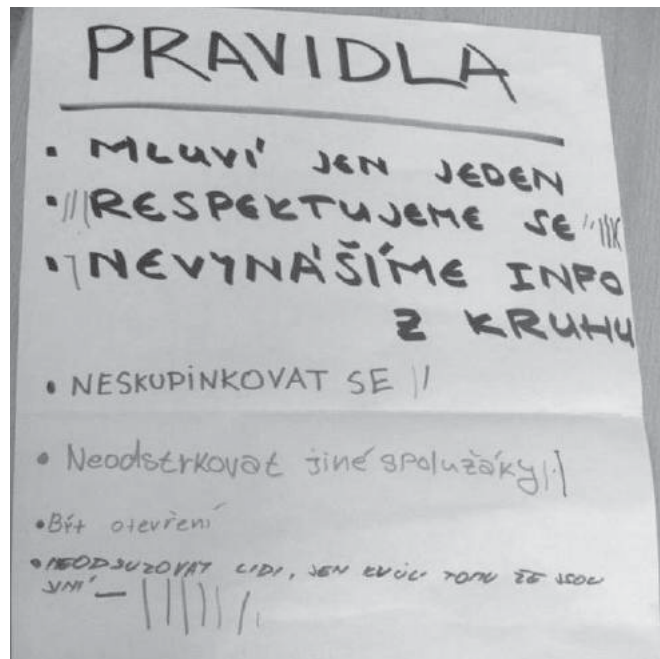 PRAVIDLA
• MLUVÍ JEN JEDEN
• RESPEKTUJEME SE
• NEVYNÁŠÍME INFO
Z KRUHU
• NESKUPINKOVAT SE
• Neodstrkovat jiné spolužáky
• Být otevření
• NEODSUZOVAT LIDI, JEN KVŮLI TOMU ŽE JSOU
JINÍ –